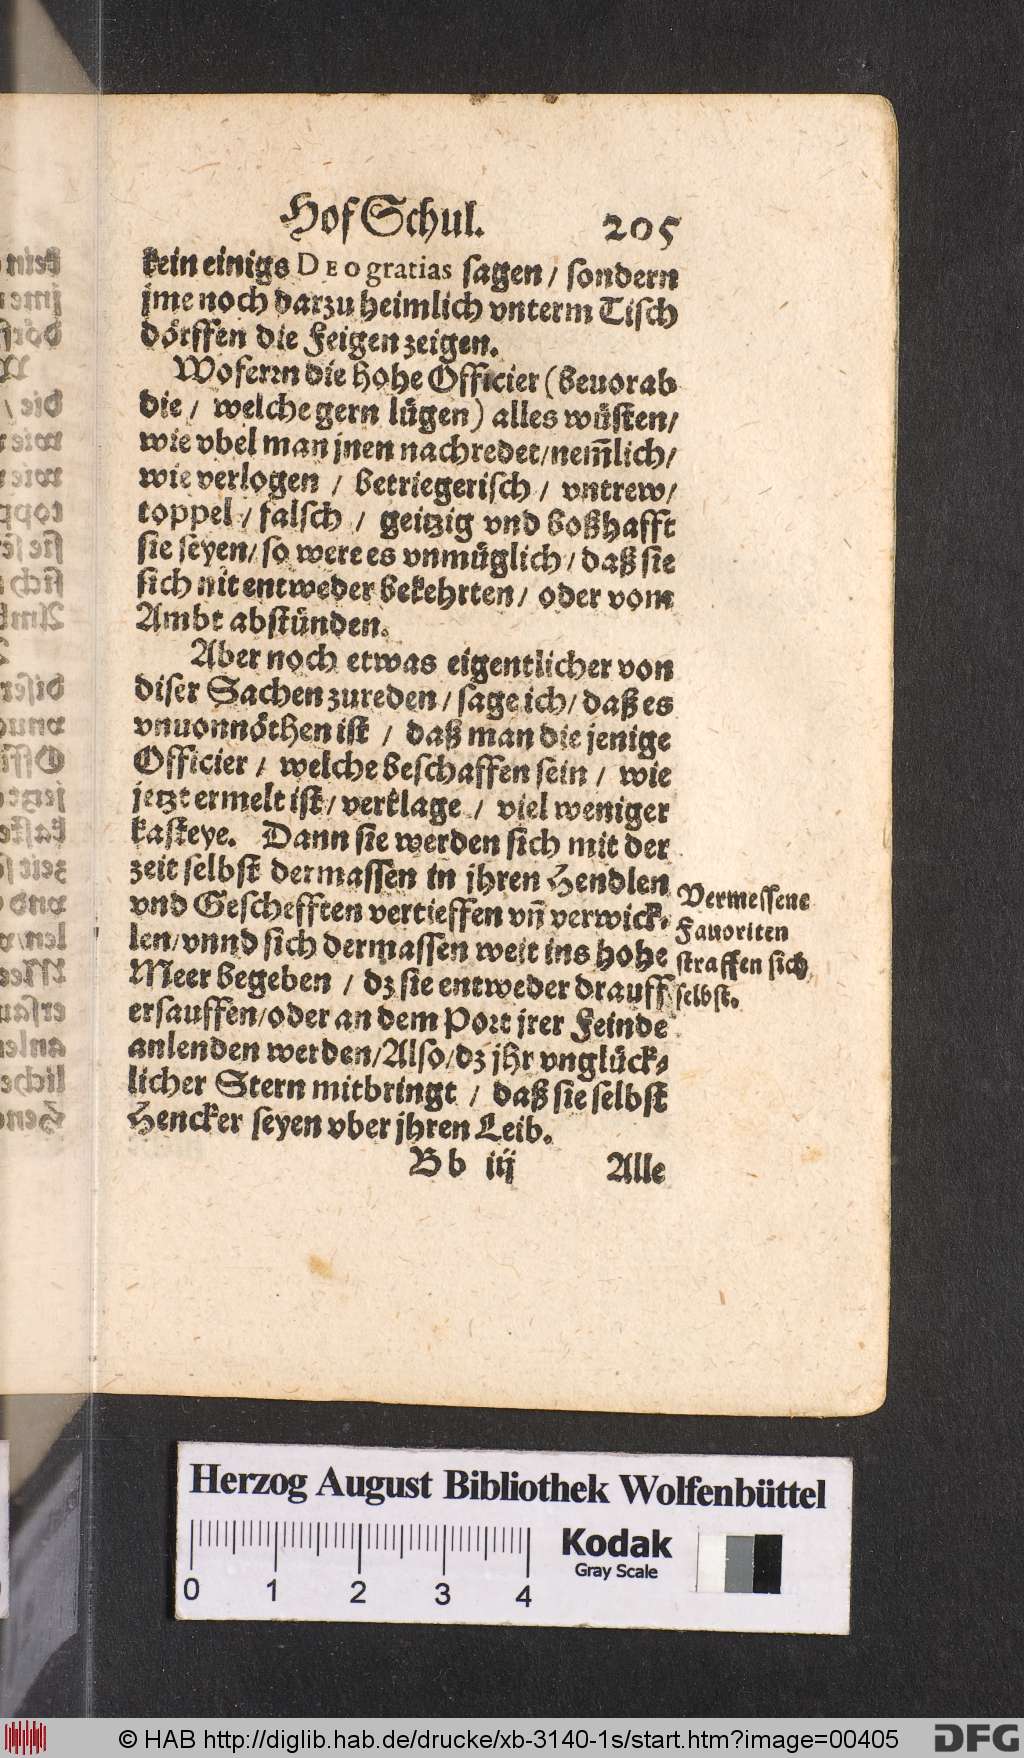 Hof Schul. 205
kein einigs DEo gratias sagen / sondern
jme noch darzu heimlich vnterm Tisch
dörffen die Feigen zeigen.
Wofern die hohe Officier (beuorab
die / welche gern lügen) alles wüsten /
wie vbel man jnen nachredet / nem̃lich /
wie verlogen / betriegerisch / vntrew /
toppel / falsch / geitzig vnd boßhafft
sie seyen / so were es vnmüglich / daß sie
sich nit entweder bekehrten / oder vom
Ambt abstünden.
Aber noch etwas eigentlicher von
diser Sachen zureden / sage ich / daß es
vnuonnöthen ist / daß man die jenige
Officier / welche beschaffen sein / wie
jetzt ermelt ist / verklage / viel weniger
kasteye. Dann sie werden sich mit der
zeit selbst dermassen in jhren Hendlen
vnd Geschefften vertieffen vñ verwick-
len / vnnd sich dermassen weit ins hohe
Meer begeben / dz sie entweder drauff
ersauffen / oder an dem Port jrer Feinde
anlenden werden / Also / dz jhr vnglück-
licher Stern mitbringt / daß sie selbst
Hencker seyen vber jhren Leib.
Vermessene
Fauoriten
straffen sich
selbst.
Bb iij Alle
Herzog August Bibliothek Wolfenbüttel
0 1 2 3 4
Kodak
Gray Scale
© HAB http://diglib.hab.de/drucke/xb-3140-1s/start.htm?image=00405
DFG